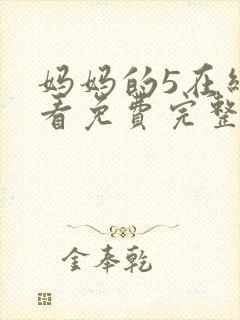 妈妈的5在线
看免费完整
金奉乾